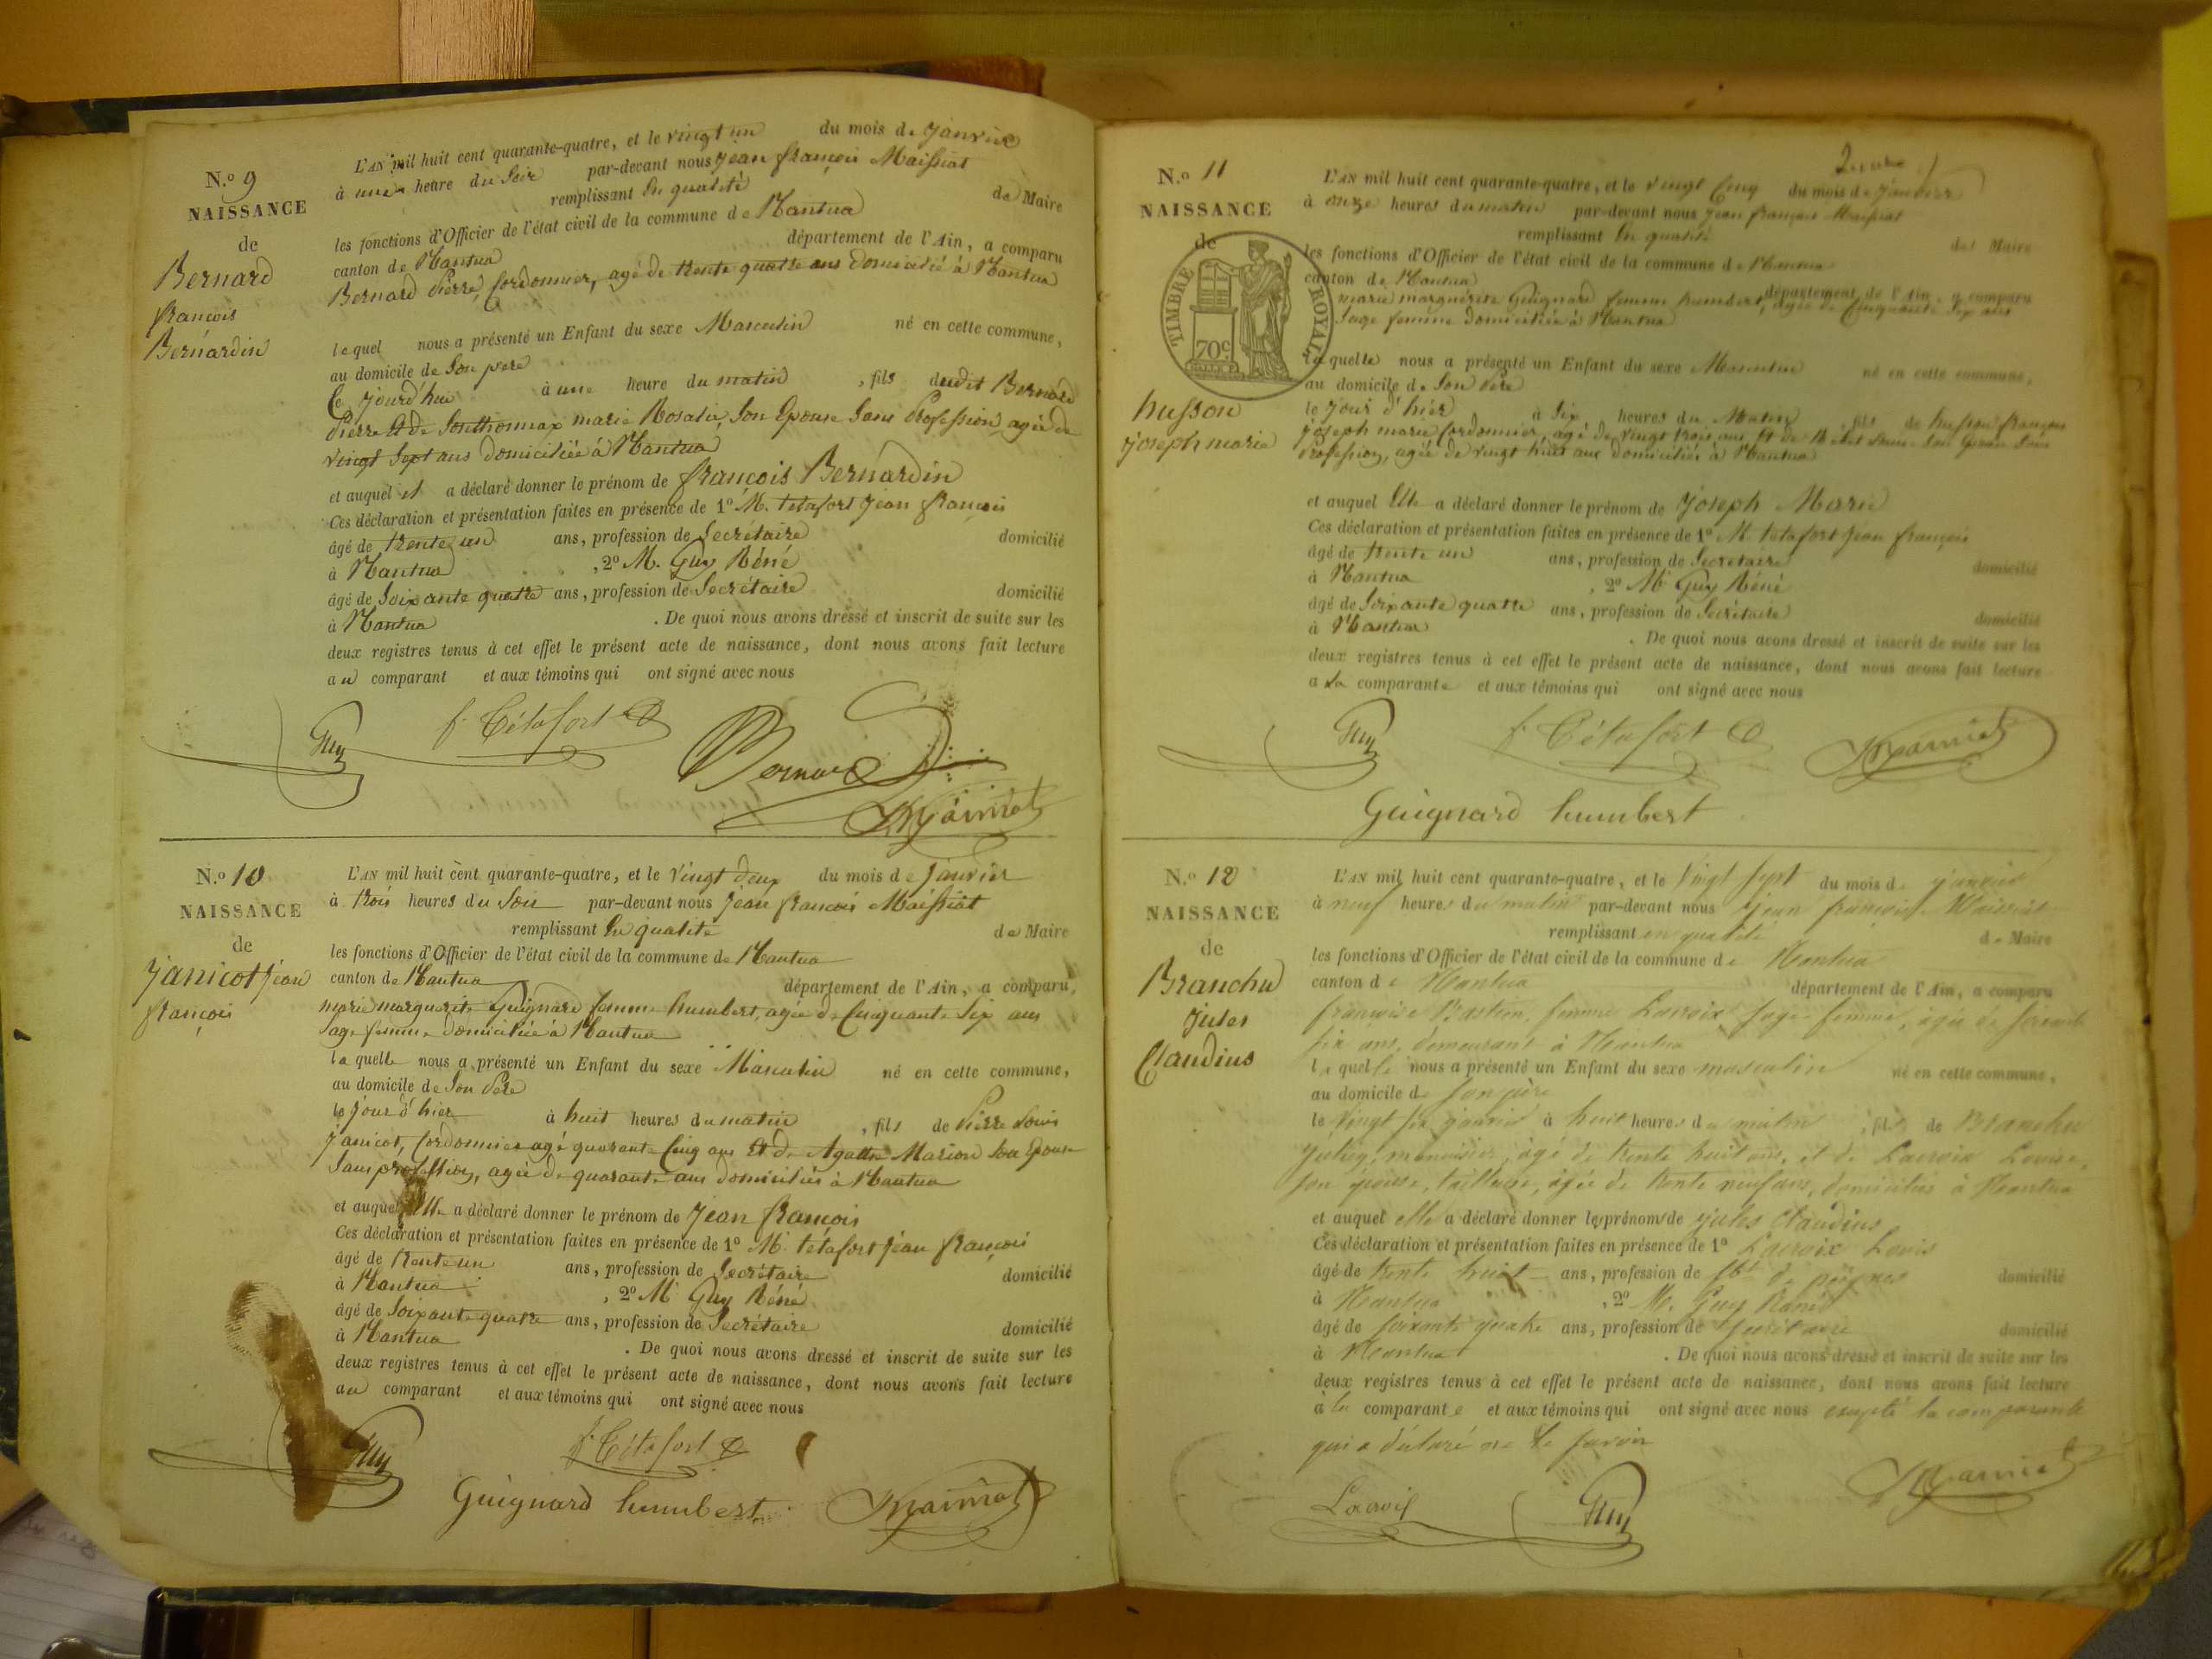 N.º 9
NAISSANCE
de
Bernard
françois
Bernardin
L'AN mil huit cent quarante-quatre, et le vingt un du mois de janvier
à une heure du Soir par-devant nous jean françois Maissiat
remplissant En qualité de Maire
les fonctions d'Officier de l'état civil de la commune de Nantua
canton de Nantua département de l'Ain, a comparu
Bernard Pierre, Cordonnier, agé de trente quatre ans domicilié à Nantua
lequel nous a présenté un Enfant du sexe Masculin né en cette commune,
au domicile de Son père
Ce jourd'hui à une heure du matin, fils dudit Bernard
Pierre Et de Sonthonnax marie Rosalie, Son Epouse Sans Profession, agée de
vingt Sept ans domiciliée à Nantua
et auquel il a déclaré donner le prénom de françois Bernardin
Ces déclaration et présentation faites en présence de 1º M. tétafort jean françois
âgé de trente un ans, profession de Secrétaire domicilié
à Nantua, 2º M. Guy Réné
âgé de Soixante quatre ans, profession de Secrétaire domicilié
à Nantua. De quoi nous avons dressé et inscrit de suite sur les
deux registres tenus à cet effet le présent acte de naissance, dont nous avons fait lecture
au comparant et aux témoins qui ont signé avec nous
Guy f. Tétafort Bernard
N.º 10
NAISSANCE
de
janicot jean
françois
L'AN mil huit cent quarante-quatre, et le vingt deux du mois de janvier
à trois heures du Soir par-devant nous jean françois Maissiat
remplissant En qualité de Maire
les fonctions d'Officier de l'état civil de la commune de Nantua
canton de Nantua département de l'Ain, a comparu,
marie marguerite Guignard femme humbert, agée de Cinquante Six ans
Sage femme domiciliée à Nantua
laquelle nous a présenté un Enfant du sexe Masculin né en cette commune,
au domicile de Son Père
le jour d'hier à huit heures du matin, fils de Pierre Louis
janicot, Cordonnier agé quarante Cinq ans Et de Agathe Marion Son Epouse
Sans profession, agée de quarante ans domiciliés à Nantua
et auquel Elle a déclaré donner le prénom de jean françois
Ces déclaration et présentation faites en présence de 1º M. tétafort jean françois
âgé de trente un ans, profession de Secrétaire domicilié
à Nantua, 2º M Guy Réné
âgé de Soixante quatre ans, profession de Secrétaire domicilié
à Nantua. De quoi nous avons dressé et inscrit de suite sur les
deux registres tenus à cet effet le présent acte de naissance, dont nous avons fait lecture
au comparant et aux témoins qui ont signé avec nous
Guy f. Tétafort
Guignard humbert
N.º 11
NAISSANCE
de
TIMBRE ROYAL
70c
husson
joseph marie
L'AN mil huit cent quarante-quatre, et le vingt Cinq du mois de janvier
à onze heures du matin par-devant nous jean françois Maissiat
remplissant En qualité de Maire
les fonctions d'Officier de l'état civil de la commune de Nantua
canton de Nantua département de l'Ain, a comparu
marie marguerite Guignard femme humbert, agée de Cinquante Six ans
Sage femme domiciliée à Nantua
laquelle nous a présenté un Enfant du sexe Masculin né en cette commune,
au domicile de Son Père
le jour d'hier à Six heures du Matin, fils de husson françois
joseph marie Cordonnier, agé de vingt trois ans Et de Son Epouse Sans
Profession, agée de vingt huit ans domiciliés à Nantua
et auquel Elle a déclaré donner le prénom de joseph Marie
Ces déclaration et présentation faites en présence de 1º M. tétafort jean françois
âgé de trente un ans, profession de Secrétaire domicilié
à Nantua, 2º M Guy Réné
âgé de Soixante quatre ans, profession de Secrétaire domicilié
à Nantua. De quoi nous avons dressé et inscrit de suite sur les
deux registres tenus à cet effet le présent acte de naissance, dont nous avons fait lecture
a La comparante et aux témoins qui ont signé avec nous
Guy f. Tétafort
Guignard humbert
N.º 12
NAISSANCE
de
Branchu
jules
Claudius
L'AN mil huit cent quarante-quatre, et le vingt sept du mois de janvier
à neuf heures du matin par-devant nous jean françois Maissiat
remplissant en qualité de Maire
les fonctions d'Officier de l'état civil de la commune de Nantua
canton de Nantua département de l'Ain, a comparu
françoise Bastien, femme Lacroix Sage femme, agée de soixante
six ans, demeurant à Nantua
laquelle nous a présenté un Enfant du sexe masculin né en cette commune,
au domicile de son père
le vingt six janvier à huit heures du matin, fils de Branchu
menuisier, agé de trente huit ans, et de Lacroix Louise,
son épouse, tailleuse, agée de trente neuf ans, domiciliés à Nantua
et auquel elle a déclaré donner les prénoms de jules Claudius
Ces déclaration et présentation faites en présence de 1º Lacroix Louis
âgé de trente huit ans, profession de fbt de peignes domicilié
à Nantua, 2º M. Guy René
âgé de soixante quatre ans, profession de Secrétaire domicilié
à Nantua. De quoi nous avons dressé et inscrit de suite sur les
deux registres tenus à cet effet le présent acte de naissance, dont nous avons fait lecture
à la comparante et aux témoins qui ont signé avec nous excepté la comparante
qui a déclaré ne le savoir
Lacroix Guy